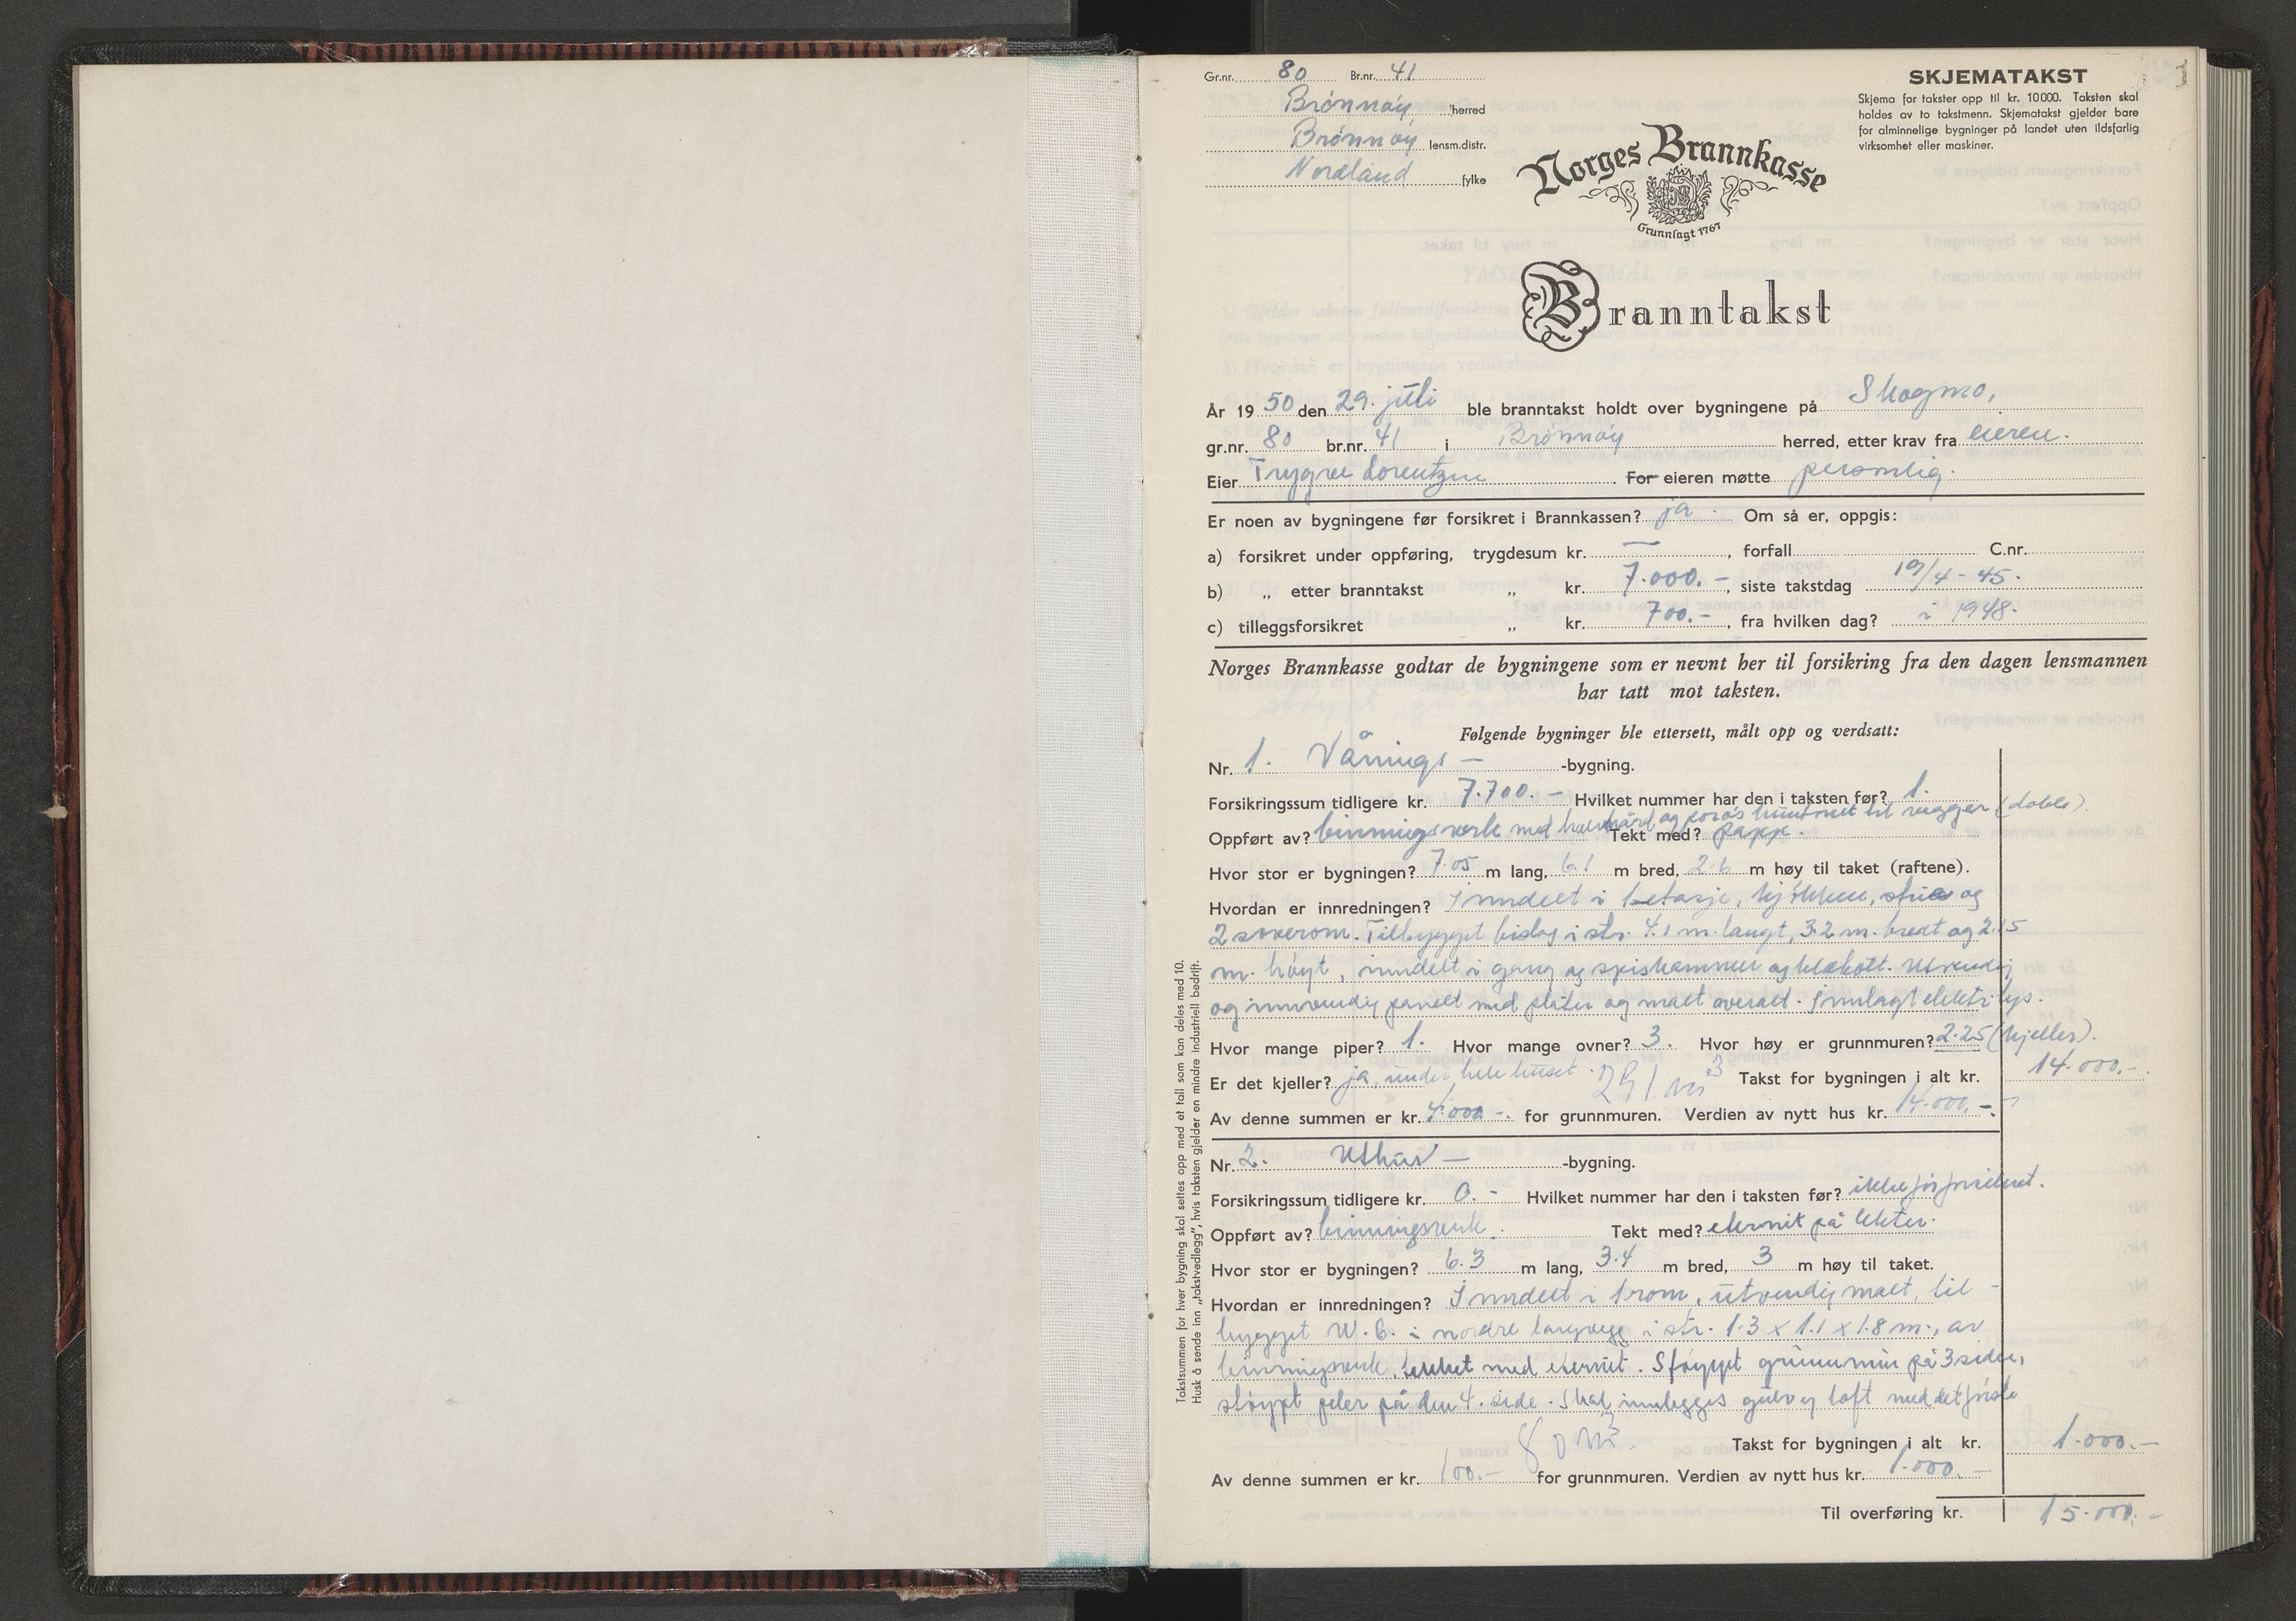 Gr.nr. 80 Br.nr. 41
Brönnöy herred
Brönnöy lensm.distr.
Nordland fylke
SKJEMATAKST
Skjema for takster opp til kr. 10000. Taksten skal
holdes av to takstmenn. Skjematakst gjelder bare
for alminnelige bygninger på landet uten ildsfarlig
virksomhet eller maskiner.
Norges Brannkasse
Grunnlagt 1767
Branntakst
År 1950 den 29. juli ble branntakst holdt over bygningene på Skogmo,
gr.nr. 80 br.nr. 41 i Brönnöy herred, etter krav fra eieren.
Eier Trygve Lorentzen For eieren møtte personlig.
Er noen av bygningene før forsikret i Brannkassen? ja. Om så er, oppgis:
a) forsikret under oppføring, trygdesum kr. — , forfall C.nr.
b) „ etter branntakst „ kr. 7.000.- , siste takstdag 19/4-45.
c) tilleggsforsikret „ kr. 700.- , fra hvilken dag? i 1948.
Norges Brannkasse godtar de bygningene som er nevnt her til forsikring fra den dagen lensmannen
har tatt mot taksten.
Følgende bygninger ble ettersett, målt opp og verdsatt:
Nr. 1. Vånings- -bygning.
Forsikringssum tidligere kr. 7.700.- Hvilket nummer har den i taksten før? 1.
Oppført av? binningsverk med hård og porøs til vegger (doble). Tekt med? papp.
Hvor stor er bygningen? 7.05 m lang, 6.1 m bred, 2.6 m høy til taket (raftene).
Hvordan er innredningen? Inndelt i 1 etasje, kjökken, stue og
2 soverom. Tilbygget bislag i str. 4.1 m. langt, 3.2 m. bredt og 2.15
m. höyt, inndelt i gang og spiskammer og klekott. Utvendig
og innvendig panelt med plater og malt overalt. Innlagt elektr. lys.
Hvor mange piper? 1. Hvor mange ovner? 3. Hvor høy er grunnmuren? 2.25 (kjeller).
Er det kjeller? ja, under hele huset. 291 m3 Takst for bygningen i alt kr. 14.000.-
Av denne summen er kr. 4.000.- for grunnmuren. Verdien av nytt hus kr. 14.000.-
Nr. 2. Uthus- -bygning.
Forsikringssum tidligere kr. 0.- Hvilket nummer har den i taksten før? ikke för forsikret.
Oppført av? binningsverk. Tekt med? eternit på lekter.
Hvor stor er bygningen? 6.3 m lang, 3.4 m bred, 3 m høy til taket.
Hvordan er innredningen? Inndelt i 1 rom, utvendig malt, til-
bygget W.C. i nordre langvegg i str. 1.3 x 1.1 x 1.8 m., av
binningsverk, tekket med eternit. Stöypt grunnmur på 3 sider,
stöypt peler på den 4. side. Skal innlegges gulv og loft med det förste
80 m3. Takst for bygningen i alt kr. 1.000.-
Av denne summen er kr. 100.- for grunnmuren. Verdien av nytt hus kr. 1.000.-
Til overføring kr. 15.000.-
Takstsummen for hver bygning skal settes opp med et tall som kan deles med 10.
Husk å sende inn „takstvedlegg", hvis taksten gjelder en mindre industriell bedrift.